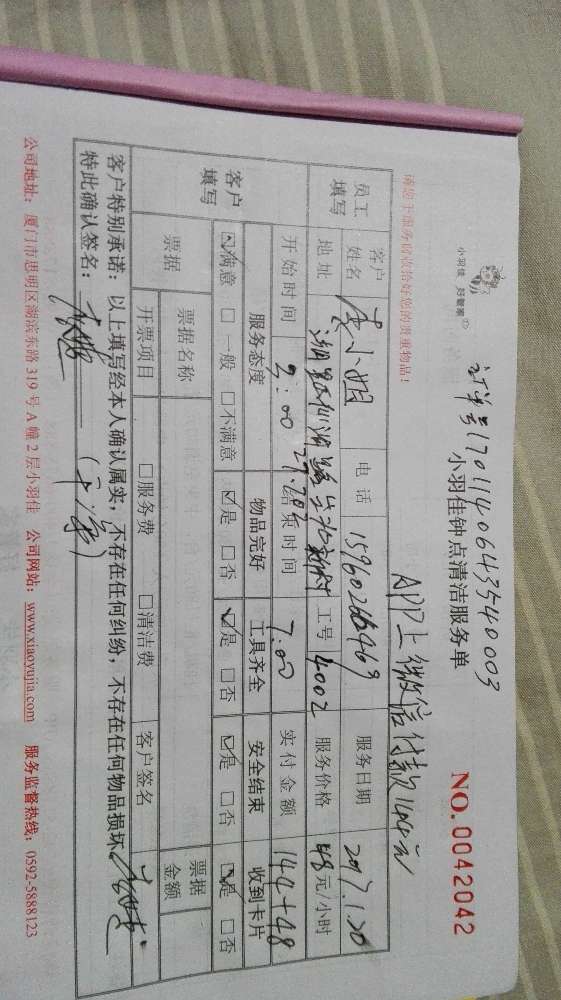 小羽佳 好管家
订单号1701140643540003
小羽佳钟点清洁服务单
NO. 0042042
请您于服务前收拾好您的贵重物品!
APP上微信付款
员工填写
客户姓名 小姐 电话 服务日期 2017.1.20
地址 工号 4002 服务价格 48元/小时
开始时间 2:00 结束时间 7:00 实付金额 144+48
客户填写
服务态度 物品完好 工具齐全 安全结束 收到卡片
☑满意 □一般 □不满意 ☑是 □否 ☑是 □否 ☑是 □否 ☑是 □否
票据 票据名称 票据金额
开票项目 □服务费 □清洁费 客户签名
客户特别承诺:以上填写经本人确认属实,不存在任何纠纷,不存在任何物品损坏,
特此确认签名:
公司地址:厦门市思明区湖滨东路319号A幢2层小羽佳 公司网站:www.xiaoyujia.com 服务监督热线:0592-5888123